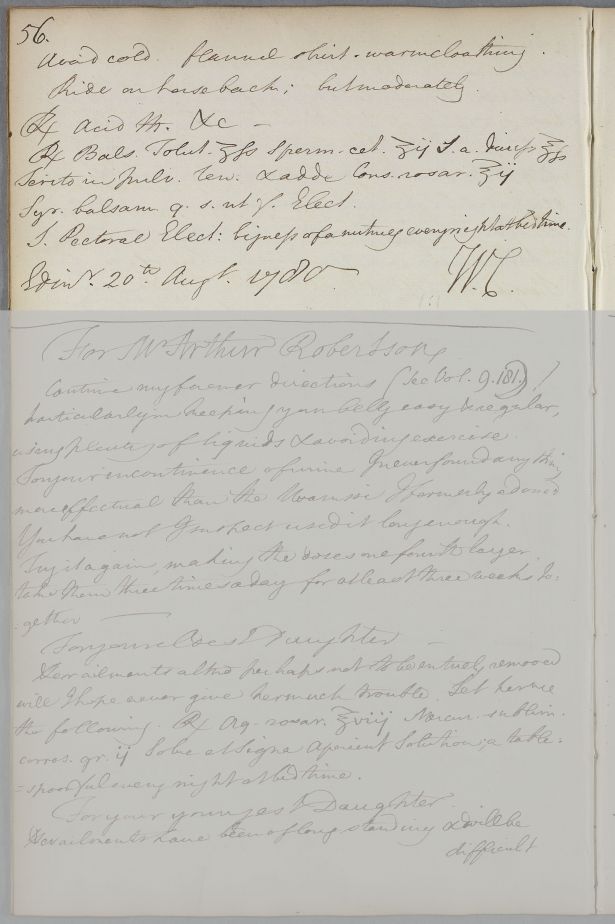 56.
Avoid cold. flannel shirt. warm cloathing.
Ride on horseback; but moderately.
℞ Acid th. &c —
℞ Bals. Tolut. ʒſs Sperm. cet. ʒij S. a. divis ʒſs
tritis in pulv. ten. & adde Cons. rosar. ʒij
Syr. balsam. q. s. ut f. Elect.
S. Pectoral Elect: bigness of a nutmeg every night at bed time.
Edinr. 20th Augt. 1780 W.C.
For Mr Arthur Robertson,
Continue my former directions (See Vol. 9. 181.)
particularly in keeping your belly easy & regular,
using plenty of liquids & avoiding exercise.
For your incontinence of urine I never found any thing
more effectual than the Uva ursi I formerly advised
You have not I suspect used it long enough.
Try it again, making the doses one fourth larger.
take them three times a day for at least three weeks to:
:gether —
For your Eldest Daughter —
Her ailments altho perhaps not to be entirely removed
will I hope never give her much trouble. Let her use
the following. ℞ Aq. rosar. ʒviij Mercur. sublim.
corros. gr. ij Solve et Signa Aperient Solution; a table:
=spoonful every night at bed time.
For your youngest Daughter.
Her ailments have been of long standing & will be
difficult